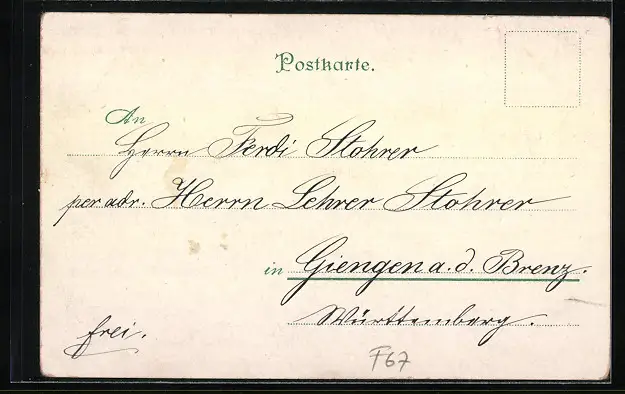 Postkarte.
An
Herrn Ferdi Stohrer
per adr. Herrn Lehrer Stohrer
in Giengen a. d. Brenz.
Württemberg.
frei.
F67